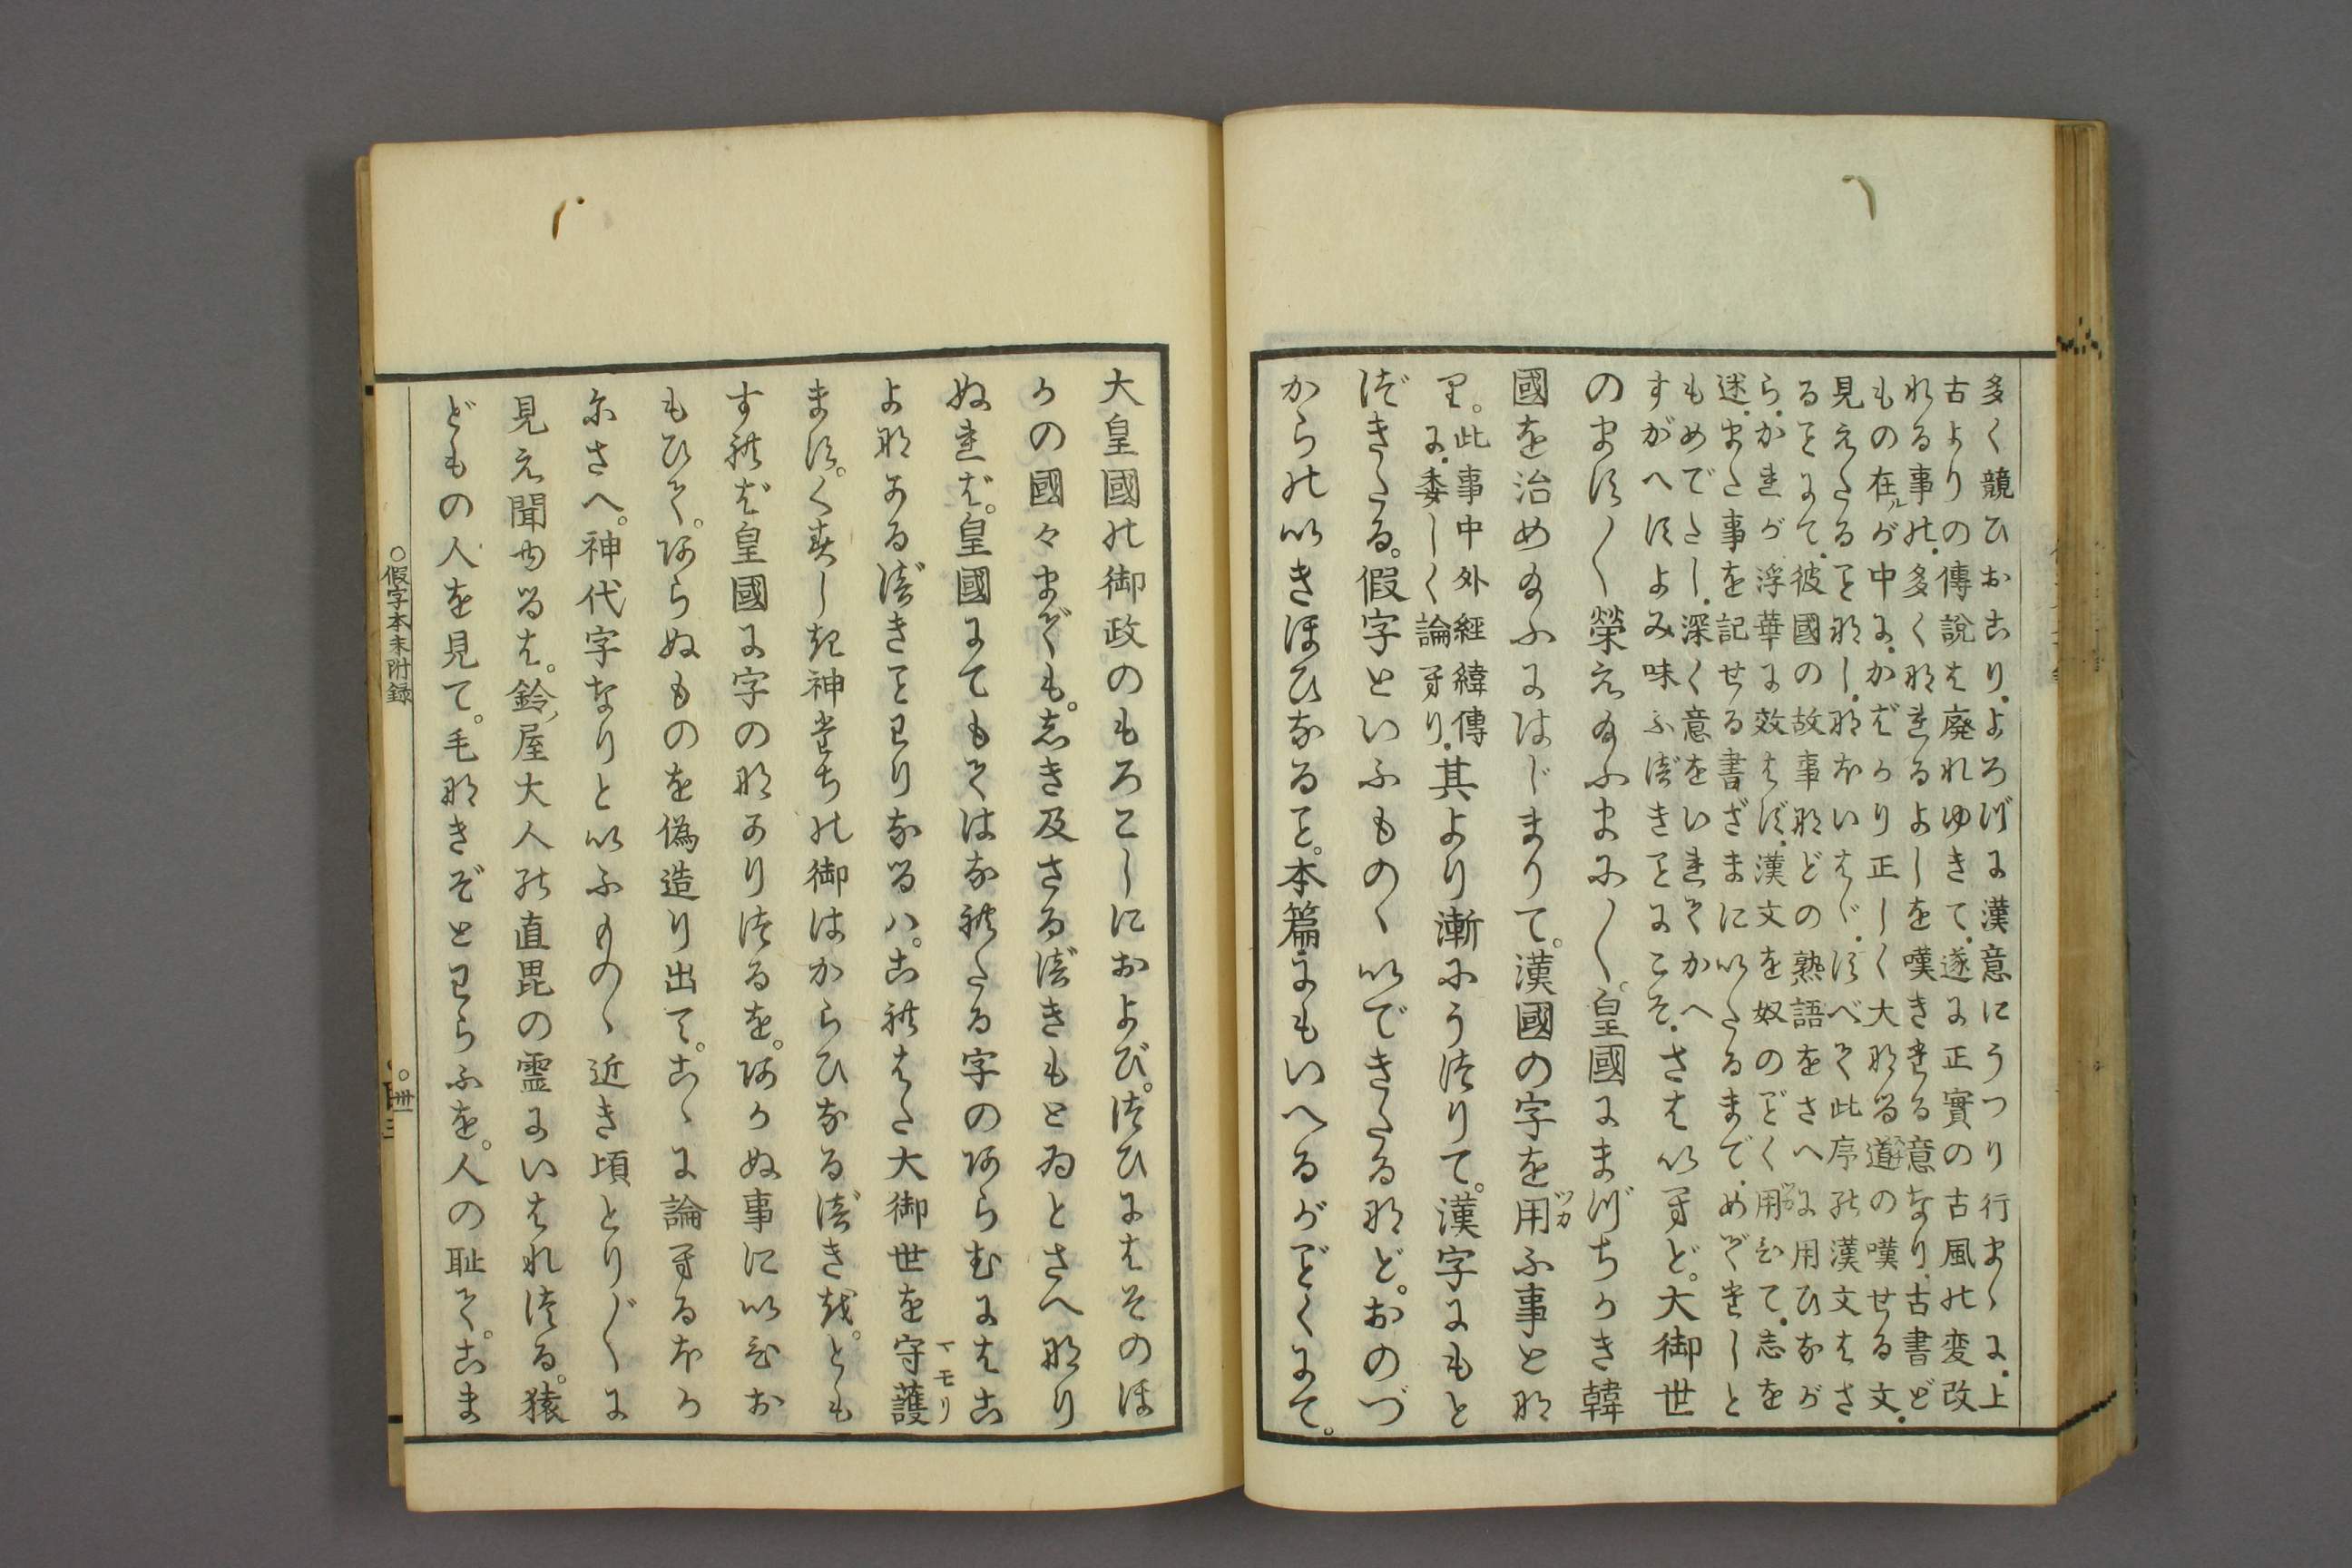 多く競ひおこり.よろづに漢意にうつり行まゝに.上
古よりの傳説は廃れゆきて.遂に正實の古風の変改
れる事の.多くなれるよしを嘆きける意なり.古書ど
もの在ルが中に.かばかり正しく大なる道の嘆せる文.
見えたることなし.なほいはゞ.すべて此序の漢文はさ
ることにて.彼國の故事などの熟語をさへに用ひなが
ら.かれが浮華に效はず.漢文を奴のごく用ひて.志を
述.また事を記せる書ざまにいたるまで.めづらしと
もめでたし.深く意をいれてかへ
すがへすよみ味ふべきことにこそ.さはいへど。大御世
のます〳〵榮え給ふまに〳〵。皇國にまづちかき韓
國を治め給ふにはじまりて。漢國の字を用ツカふ事とな
り。此事中外經緯傳
に.委しく論へり.其より漸にうつりて。漢字にもと
づきたる。假字といふものゝいできたるなど。おのづ
からのいきほひなること。本篇にもいへるがごとくにて。
大皇國の御政のもろこしにおよび。つひにはそのほ
かの國々までも。しき及さるべきもとゐとさへなり
ぬれば。皇國にてもてはなれたる字のあらむにはこ
よなかるべきことわりなるハ。これはた大御世を守護マモリ
ます。くすしき神たちの御はからひなるべきを。とも
すれば皇國に字のなかりつるを。あかぬ事にいひお
もひて。あらぬものを偽造り出て。こゝに論へるほか
にさへ。神代字なりといふものゝ近き頃とり〴〵に
見え聞ゆるは。鈴ノ屋大人の直毘の霊にいはれつる。猿
どもの人を見て。毛なきぞとわらふを。人の恥て。こま
○假字本末附録
○卌三